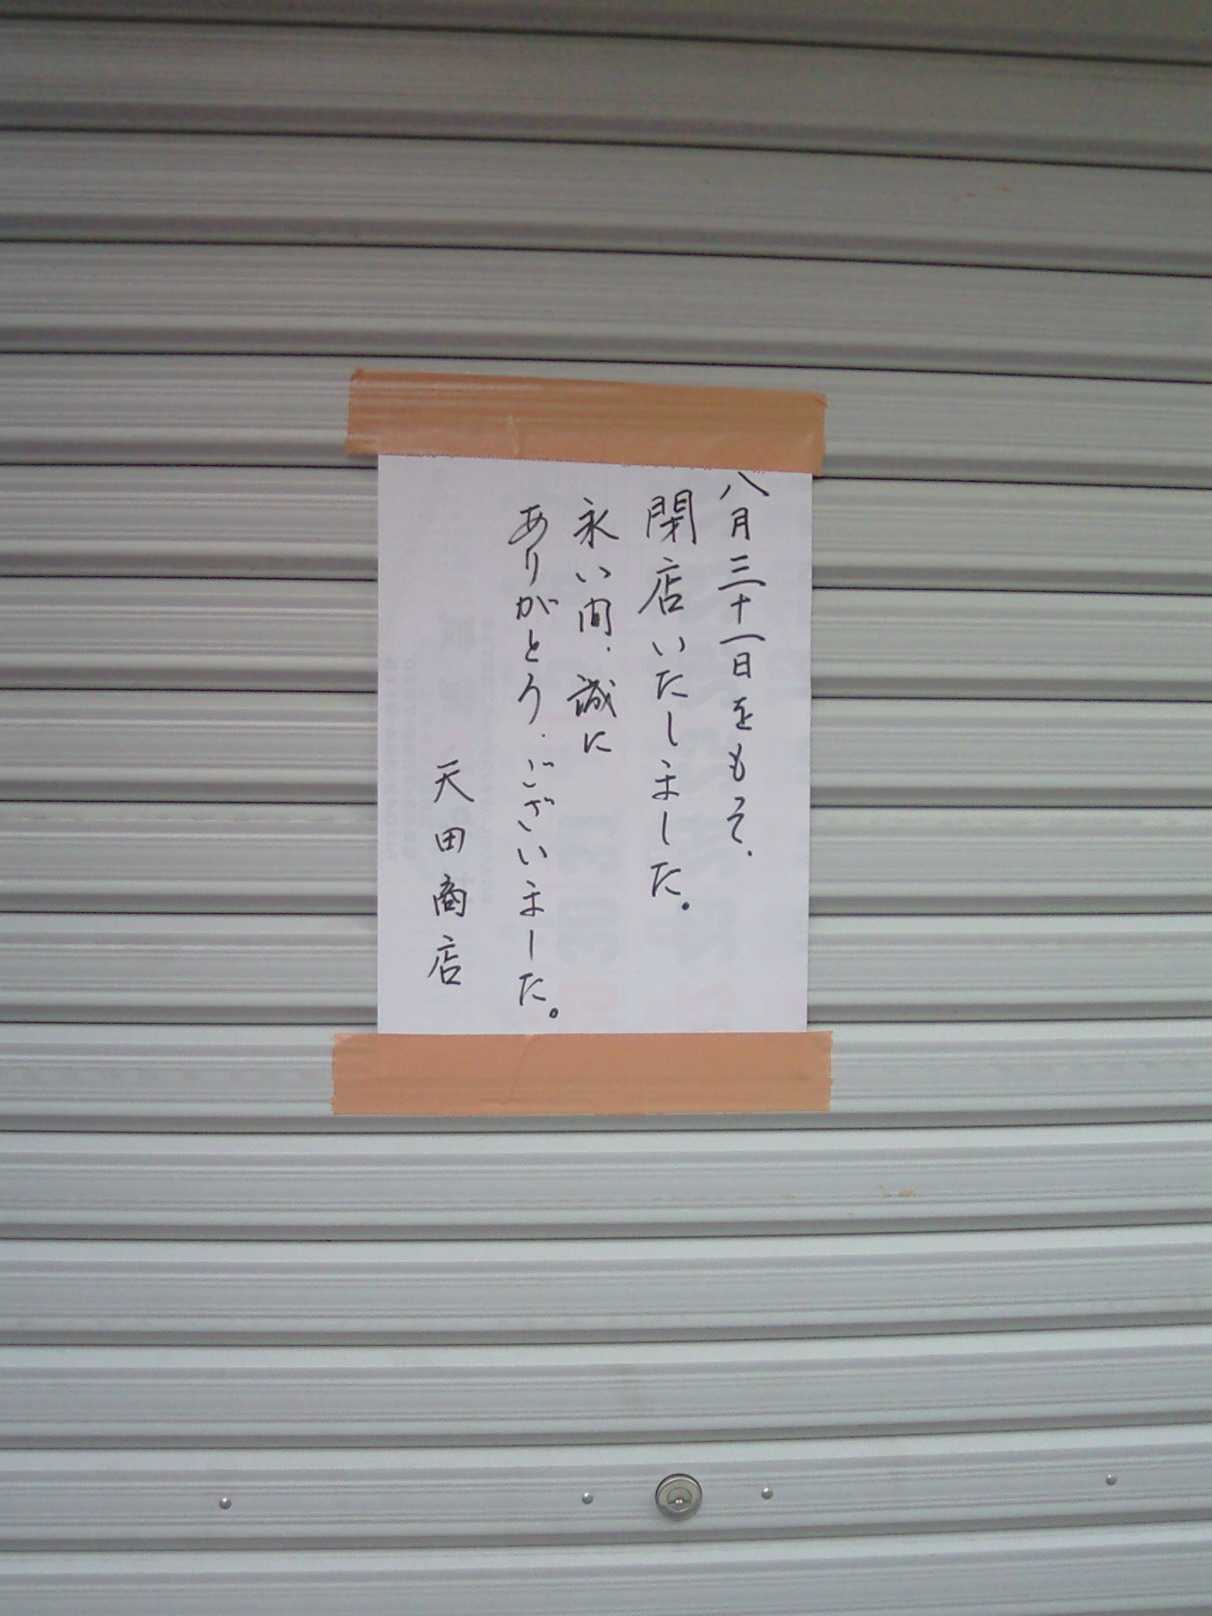 八月三十一日をもって、
閉店いたしました。
永い間、誠に
ありがとう、ございました。
天田商店